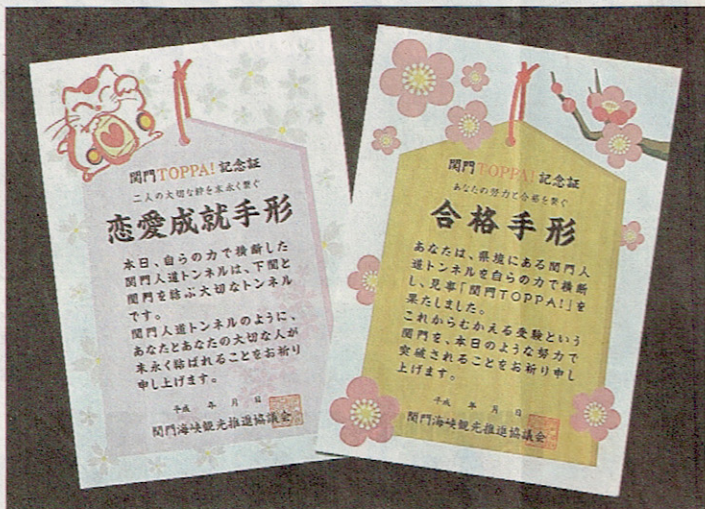 関門TOPPA!記念証
二人の大切な絆を末永く繋ぐ
恋愛成就手形
本日、自らの力で横断した
関門人道トンネルは、下関と
関門を結ぶ大切なトンネル
です。
関門人道トンネルのように、
あなたとあなたの大切な人が
末永く結ばれることをお祈り
申し上げます。
平成 年 月 日
関門海峡観光推進協議会
関門TOPPA!記念証
あなたの努力で合格を繋ぐ
合格手形
あなたは、県境にある関門人
道トンネルを自らの力で横断
し、見事「関門TOPPA!」を
果たしました。
これからむかえる受験という
関門を、本日のような努力で
突破されることをお祈り申し
上げます。
平成 年 月 日
関門海峡観光推進協議会